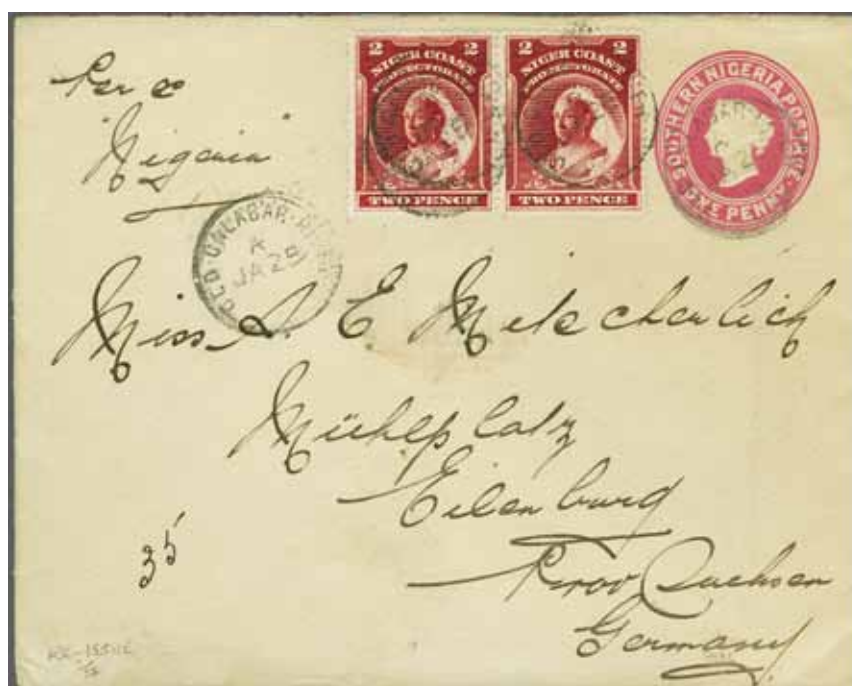 Per
"Nigeria"
2 2
NIGER COAST
PROTECTORATE
TWO PENCE
2 2
NIGER COAST
PROTECTORATE
TWO PENCE
SOUTHERN NIGERIA POSTAGE
ONE PENNY
OLD CALABAR RIVER
A
JA 28
Miss A. E. Mitscherlich
Mühlplatz
Eilenburg
Prov Sachsen
Germany
35